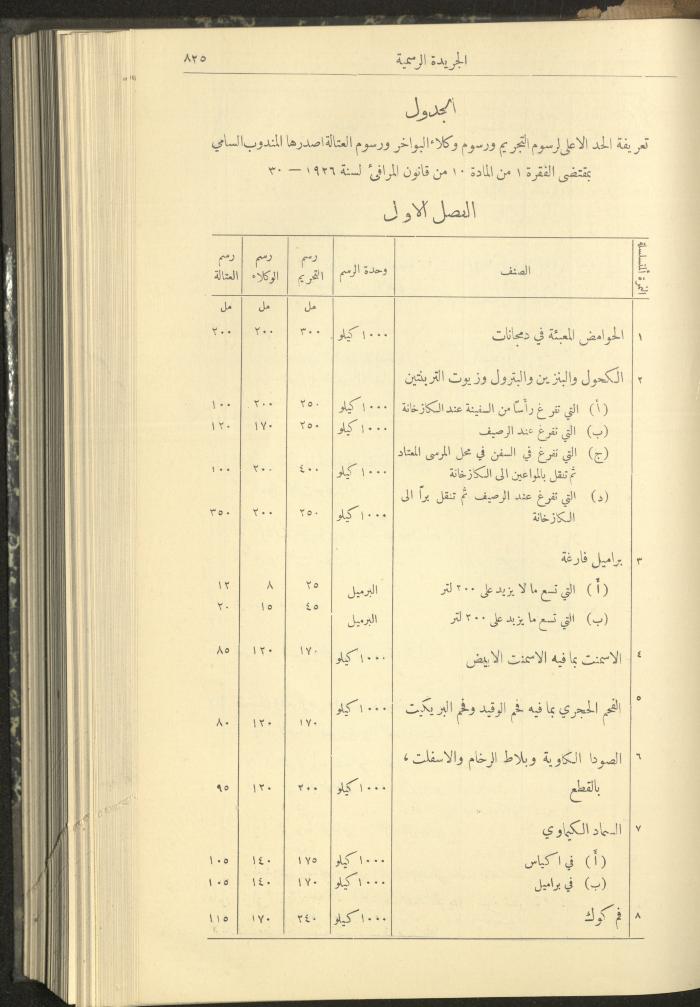 الجريدة الرسمية ٨٢٥
الجدول
تعريفة الحد الاعلى لرسوم التجريم ورسوم وكلاء البواخر ورسوم العتالة اصدرها المندوب السامي
بمقتضى الفقرة ١ من المادة ١٠ من قانون المرافئ لسنة ١٩٢٦ — ٣٠
الفصل الاول
النمرة المتسلسلة الصنف وحدة الرسم رسم التجريم رسم الوكلاء رسم العتالة
مل مل مل
١ الحوامض المعبئة في دمجانات ١٠٠٠ كيلو ٣٠٠ ٢٠٠ ٢٠٠
٢ الكحول والبنزين والبترول وزيوت التربنتين
(أ) التي تفرغ رأسًا من السفينة عند الكازخانة ١٠٠٠ كيلو ٢٥٠ ٢٠٠ ١٠٠
(ب) التي تفرغ عند الرصيف ١٠٠٠ كيلو ٢٥٠ ١٧٠ ١٢٠
(ج) التي تفرغ في السفن في محل المرسى المعتاد
ثم تنقل بالمواعين الى الكازخانة ١٠٠٠ كيلو ٤٠٠ ٢٠٠ ١٠٠
(د) التي تفرغ عند الرصيف ثم تنقل برًا الى
الكازخانة ١٠٠٠ كيلو ٢٥٠ ٢٠٠ ٣٥٠
٣ براميل فارغة
(أ) التي تسع ما لا يزيد على ٢٠٠ لتر البرميل ٢٥ ٨ ١٢
(ب) التي تسع ما يزيد على ٢٠٠ لتر البرميل ٤٥ ١٥ ٢٠
٤ الاسمنت بما فيه الاسمنت الابيض ١٠٠٠ كيلو ١٧٠ ١٢٠ ٨٥
٥ الفحم الحجري بما فيه فحم الوقيد وفحم البريكيت ١٠٠٠ كيلو ١٧٠ ١٢٠ ٨٠
٦ الصودا الكاوية وبلاط الرخام والاسفلت ،
بالقطع ١٠٠٠ كيلو ٢٠٠ ١٢٠ ٩٥
٧ السماد الكيماوي
(أ) في اكياس ١٠٠٠ كيلو ١٧٥ ١٤٠ ١٠٥
(ب) في براميل ١٠٠٠ كيلو ١٧٠ ١٤٠ ١٠٥
٨ فحم كوك ١٠٠٠ كيلو ٢٤٠ ١٧٠ ١١٥